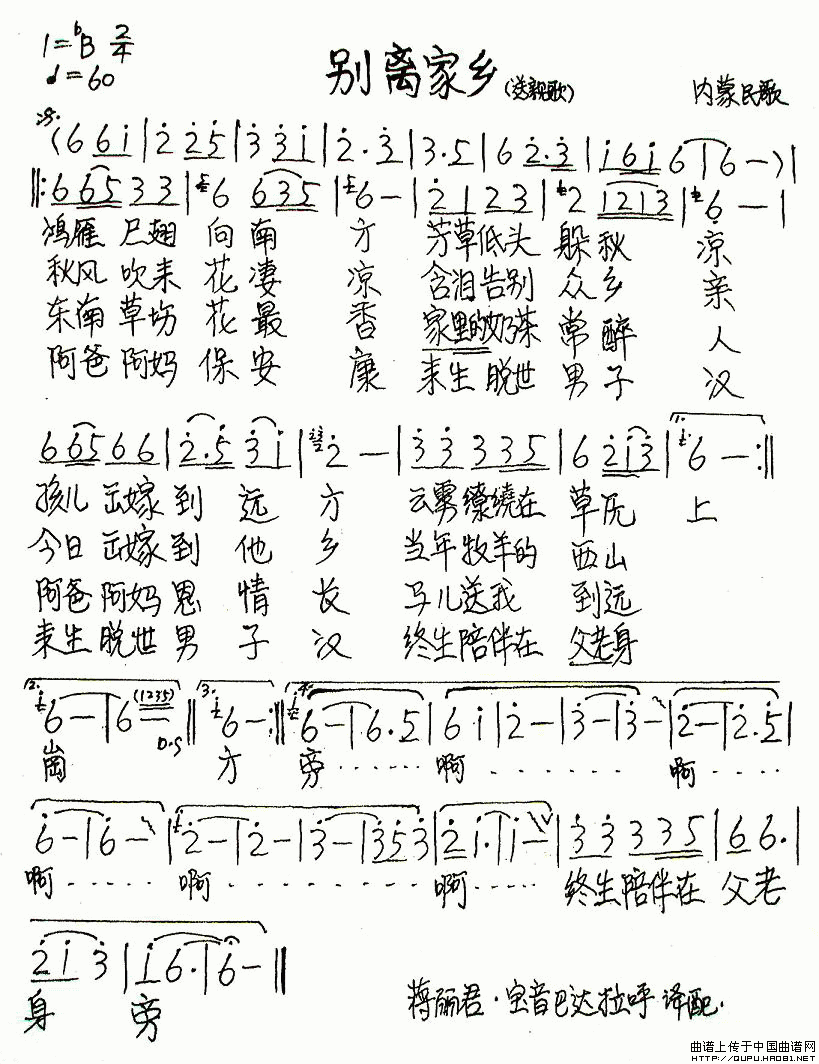 1=♭B 2/4
♩=60
别离家乡(送亲歌)
内蒙民歌
(6 6 i | 2 2 5 | 3 3 i | 2 · 3 | 3 · 5 | 6 2 · 3 | i 6 i 6 | 6 — ) |
‖: 6 6 5 3 3 | 6 6 3 5 | 6 — | 2 1 2 3 | 2 1 2 1 3 | 6 — |
鸿雁 尺翅 向南 方 芳草低头 躲秋 凉
秋风 吹来 花凄 凉 含泪告别 众乡 亲
东南 草场 花最 香 家里的奶茶 常醉 人
阿爸 阿妈 保安 康 来生脱世 男子 汉
6 6 5 6 6 | 2 · 5 3 i | 2 — | 3 3 3 3 5 | 6 2 i 3 | 1. 6 — :‖
孩儿 出嫁 到 远 方 云雾缭绕在 草原 上
今日 出嫁 到 他 乡 当年牧羊的 西山
阿爸 阿妈 恩 情 长 马儿送我 到远
来生 脱世 男 子 汉 终生陪伴在 父老身
2. 6 — | 6 (1235) ‖ 3. 6 — :‖ 4. 6 — | 6 · 5 | 6 i | 2 — | 3 — | 3 — | 2 — | 2 · 5 |
D.S
崗 方 旁 …… 啊 …… 啊 ……
6 — | 6 — | 2 — | 2 — | 3 — | 3 5 3 | 2 i · | i — | 3 3 3 3 5 | 6 6 · |
啊 …… 啊 …… 啊 …… 终生陪伴在 父老
2 i 3 | i 6 · | 6 — ‖
身 旁
蒋丽君·宝音巴达拉呼 译配.
曲谱上传于中国曲谱网
HTTP://QUPU.HAO81.NET